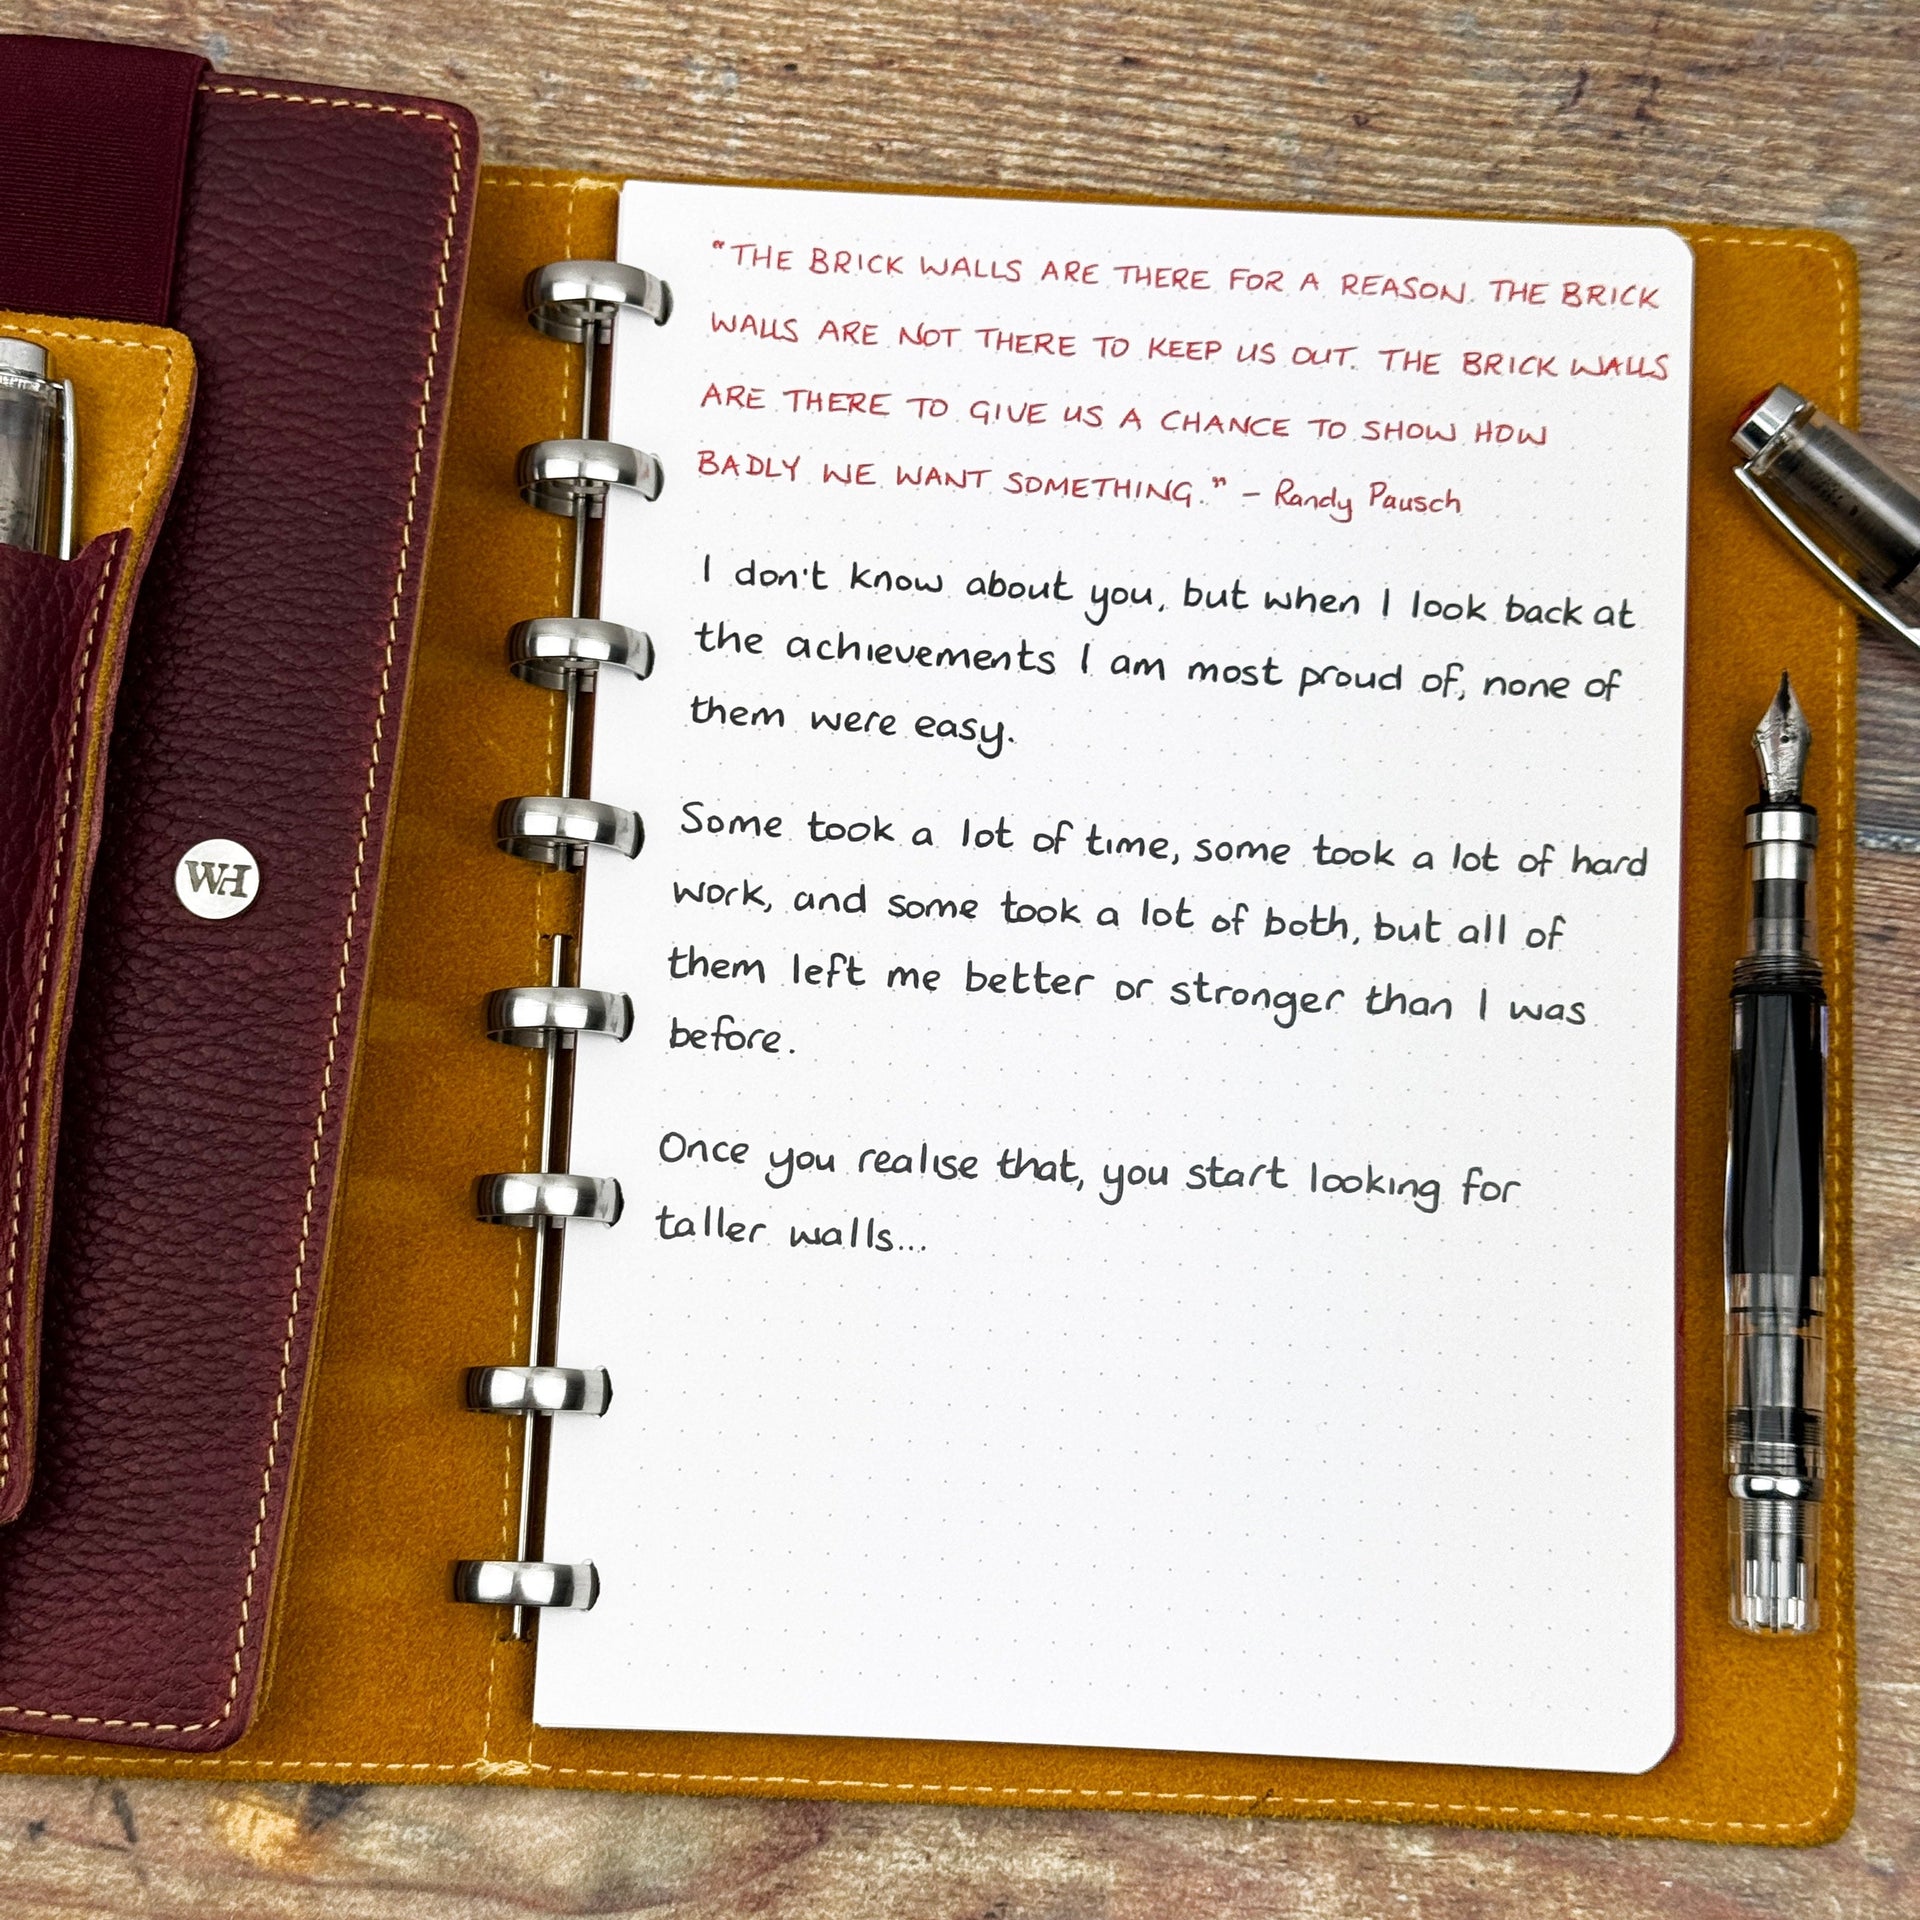 "THE BRICK WALLS ARE THERE FOR A REASON. THE BRICK
WALLS ARE NOT THERE TO KEEP US OUT. THE BRICK WALLS
ARE THERE TO GIVE US A CHANCE TO SHOW HOW
BADLY WE WANT SOMETHING." - Randy Pausch
I don't know about you, but when I look back at
the achievements I am most proud of, none of
them were easy.
Some took a lot of time, some took a lot of hard
work, and some took a lot of both, but all of
them left me better or stronger than I was
before.
Once you realise that, you start looking for
taller walls...
WH